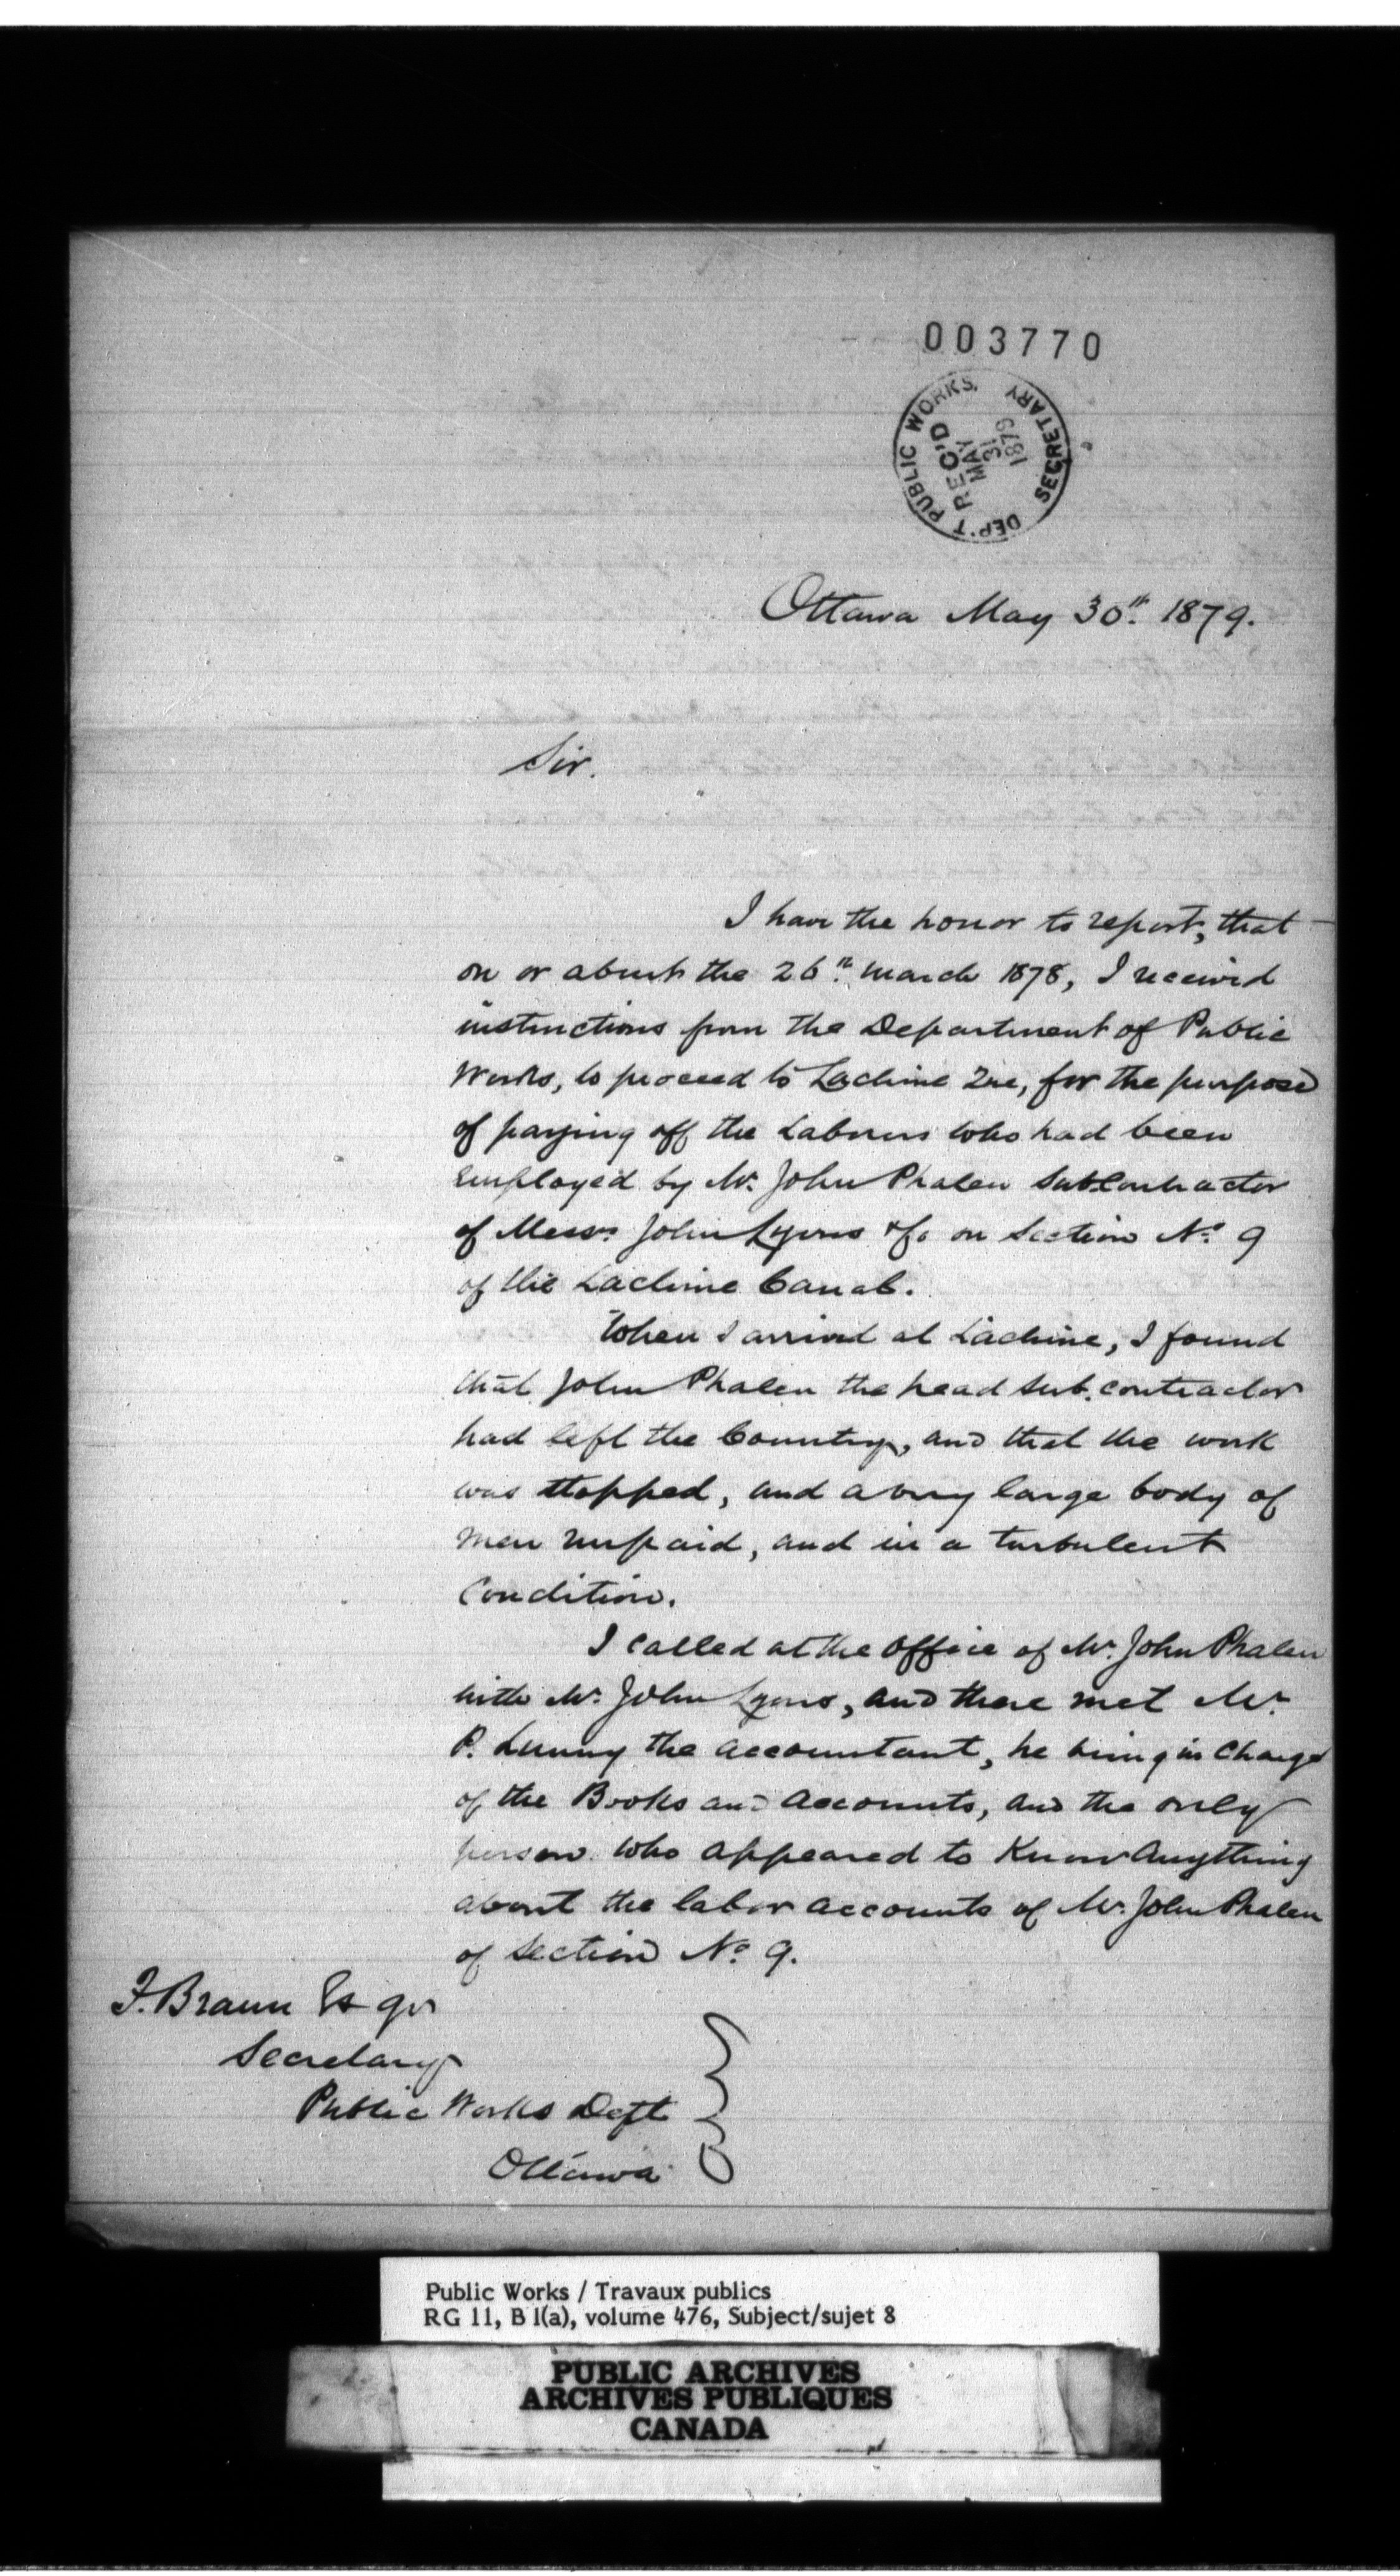 003770
DEP'T PUBLIC WORKS. SECRETARY
REC'D
MAY
31
1879
Ottawa May 30th. 1879.
Sir.
I have the honor to report, that
on or about the 26th. March 1878, I received
instructions from the Department of Public
Works, to proceed to Lachine Que, for the purpose
of paying off the Laborers who had been
employed by Mr. John Phalen Sub Contractor
of Messrs John Lyons & Co on Section No. 9
of the Lachine Canal.
When I arrived at Lachine, I found
that John Phalen the head Sub. contractor
had left the Country, and that the work
was stopped, and a very large body of
men unpaid, and in a turbulent
Condition.
I called at the Office of Mr. John Phalen
with Mr. John Lyons, and there met Mr.
P. Lunny the accountant, he being in Charge
of the Books and accounts, and the only
person who appeared to Know Anything
about the labor accounts of Mr. John Phalen
of Section No. 9.
F. Braun Esqr
Secretary
Public Works Dept
Ottawa
Public Works / Travaux publics
RG 11, B 1(a), volume 476, Subject/sujet 8
PUBLIC ARCHIVES
ARCHIVES PUBLIQUES
CANADA